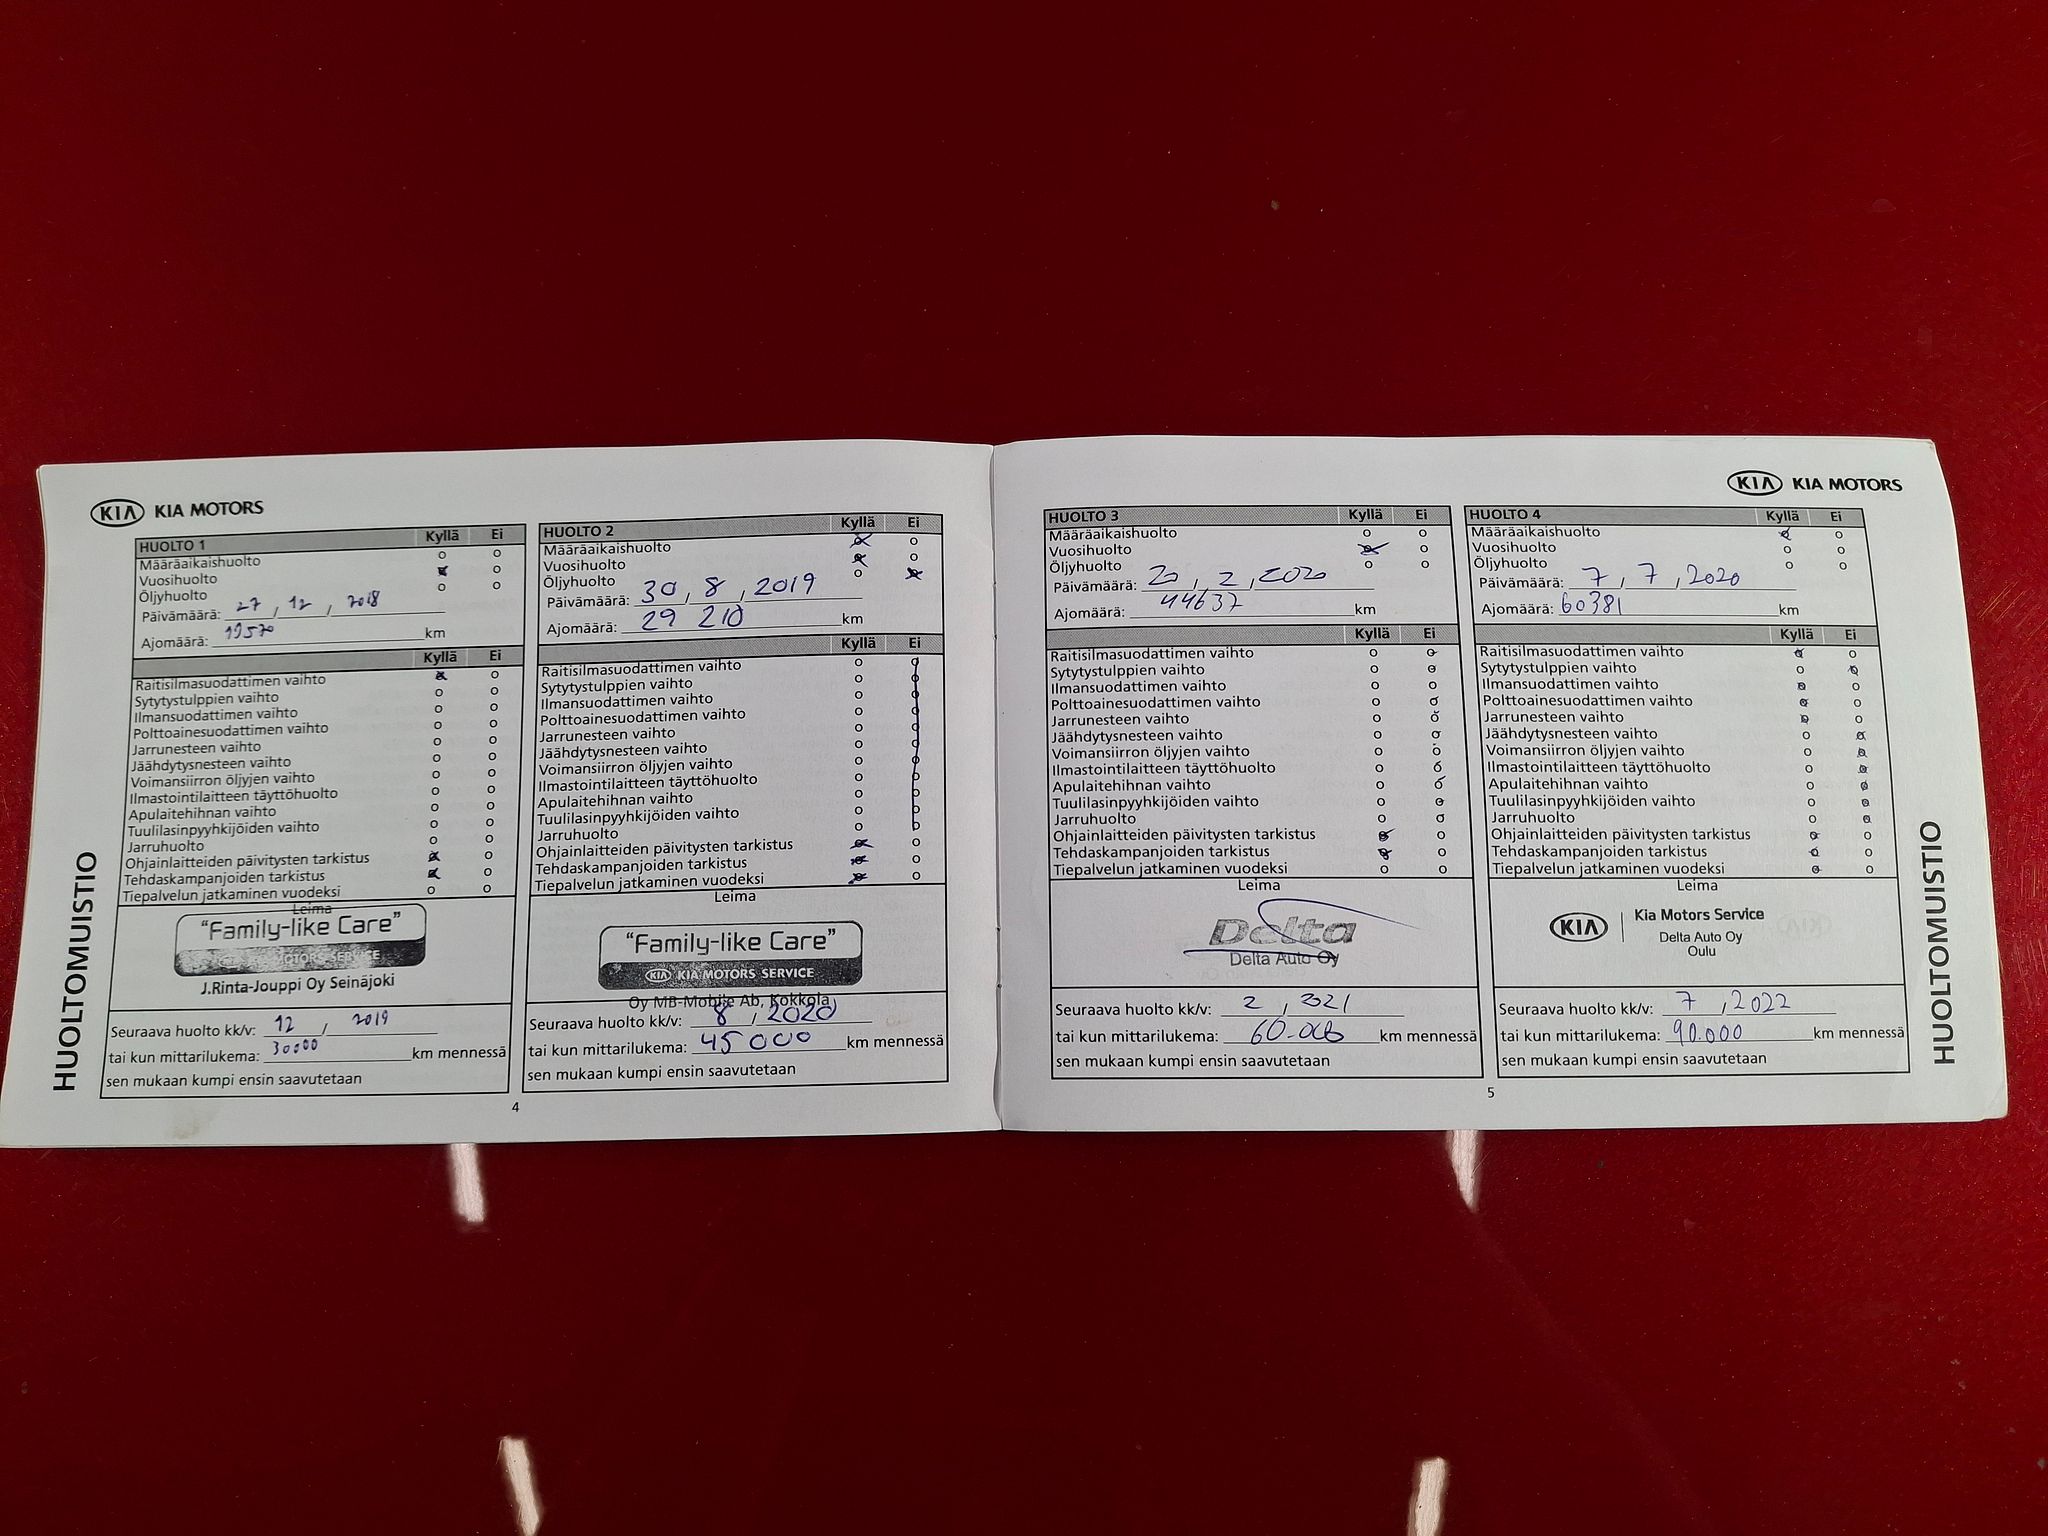 KIA KIA MOTORS
HUOLTOMUISTIO
HUOLTO 1 Kyllä Ei
Määräaikaishuolto o o
Vuosihuolto x o
Öljyhuolto o o
Päivämäärä: 27 / 12 / 2018
Ajomäärä: km
Kyllä Ei
Raitisilmasuodattimen vaihto x o
Sytytystulppien vaihto o o
Ilmansuodattimen vaihto o o
Polttoainesuodattimen vaihto o o
Jarrunesteen vaihto o o
Jäähdytysnesteen vaihto o o
Voimansiirron öljyjen vaihto o o
Ilmastointilaitteen täyttöhuolto o o
Apulaitehihnan vaihto o o
Tuulilasinpyyhkijöiden vaihto o o
Jarruhuolto o o
Ohjainlaitteiden päivitysten tarkistus x o
Tehdaskampanjoiden tarkistus x o
Tiepalvelun jatkaminen vuodeksi o o
Leima
"Family-like Care"
KIA MOTORS SERVICE
J.Rinta-Jouppi Oy Seinäjoki
Seuraava huolto kk/v: 12 / 2019
tai kun mittarilukema: 30000 km mennessä
sen mukaan kumpi ensin saavutetaan
HUOLTO 2 Kyllä Ei
Määräaikaishuolto x o
Vuosihuolto x o
Öljyhuolto o x
Päivämäärä: 30 / 8 / 2019
Ajomäärä: 29 210 km
Kyllä Ei
Raitisilmasuodattimen vaihto o o
Sytytystulppien vaihto o o
Ilmansuodattimen vaihto o o
Polttoainesuodattimen vaihto o o
Jarrunesteen vaihto o o
Jäähdytysnesteen vaihto o o
Voimansiirron öljyjen vaihto o o
Ilmastointilaitteen täyttöhuolto o o
Apulaitehihnan vaihto o o
Tuulilasinpyyhkijöiden vaihto o o
Jarruhuolto o o
Ohjainlaitteiden päivitysten tarkistus x o
Tehdaskampanjoiden tarkistus x o
Tiepalvelun jatkaminen vuodeksi x o
Leima
"Family-like Care"
KIA KIA MOTORS SERVICE
Oy MB-Mobile Ab, Kokkola
Seuraava huolto kk/v: 8 / 2020
tai kun mittarilukema: 45 000 km mennessä
sen mukaan kumpi ensin saavutetaan
4
KIA KIA MOTORS
HUOLTO 3 Kyllä Ei
Määräaikaishuolto o o
Vuosihuolto x o
Öljyhuolto o o
Päivämäärä: 20 / 2 / 2020
Ajomäärä: 44637 km
Kyllä Ei
Raitisilmasuodattimen vaihto o o
Sytytystulppien vaihto o o
Ilmansuodattimen vaihto o o
Polttoainesuodattimen vaihto o o
Jarrunesteen vaihto o o
Jäähdytysnesteen vaihto o o
Voimansiirron öljyjen vaihto o o
Ilmastointilaitteen täyttöhuolto o o
Apulaitehihnan vaihto o o
Tuulilasinpyyhkijöiden vaihto o o
Jarruhuolto o o
Ohjainlaitteiden päivitysten tarkistus x o
Tehdaskampanjoiden tarkistus x o
Tiepalvelun jatkaminen vuodeksi o o
Leima
Delta
Delta Auto Oy
Seuraava huolto kk/v: 2 / 2021
tai kun mittarilukema: 60.000 km mennessä
sen mukaan kumpi ensin saavutetaan
HUOLTO 4 Kyllä Ei
Määräaikaishuolto x o
Vuosihuolto o o
Öljyhuolto o o
Päivämäärä: 7 / 7 / 2020
Ajomäärä: 60381 km
Kyllä Ei
Raitisilmasuodattimen vaihto x o
Sytytystulppien vaihto o x
Ilmansuodattimen vaihto x o
Polttoainesuodattimen vaihto x o
Jarrunesteen vaihto x o
Jäähdytysnesteen vaihto o x
Voimansiirron öljyjen vaihto o x
Ilmastointilaitteen täyttöhuolto o x
Apulaitehihnan vaihto o x
Tuulilasinpyyhkijöiden vaihto o x
Jarruhuolto o x
Ohjainlaitteiden päivitysten tarkistus x o
Tehdaskampanjoiden tarkistus x o
Tiepalvelun jatkaminen vuodeksi x o
Leima
KIA Kia Motors Service
Delta Auto Oy
Oulu
Seuraava huolto kk/v: 7 / 2022
tai kun mittarilukema: 90.000 km mennessä
sen mukaan kumpi ensin saavutetaan
5
HUOLTOMUISTIO